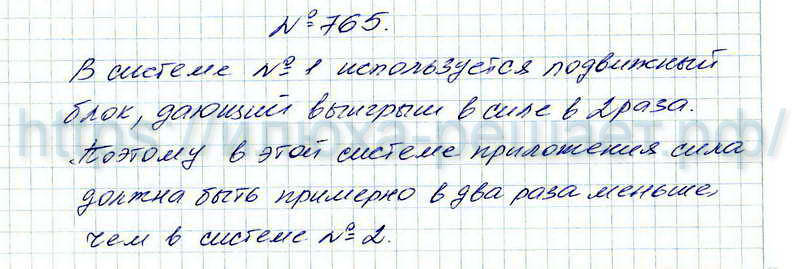 №765.
В системе №1 используется подвижный
блок, дающий выигрыш в силе в 2 раза.
Поэтому в этой системе приложения сила
должна быть примерно в два раза меньше,
чем в системе №2.